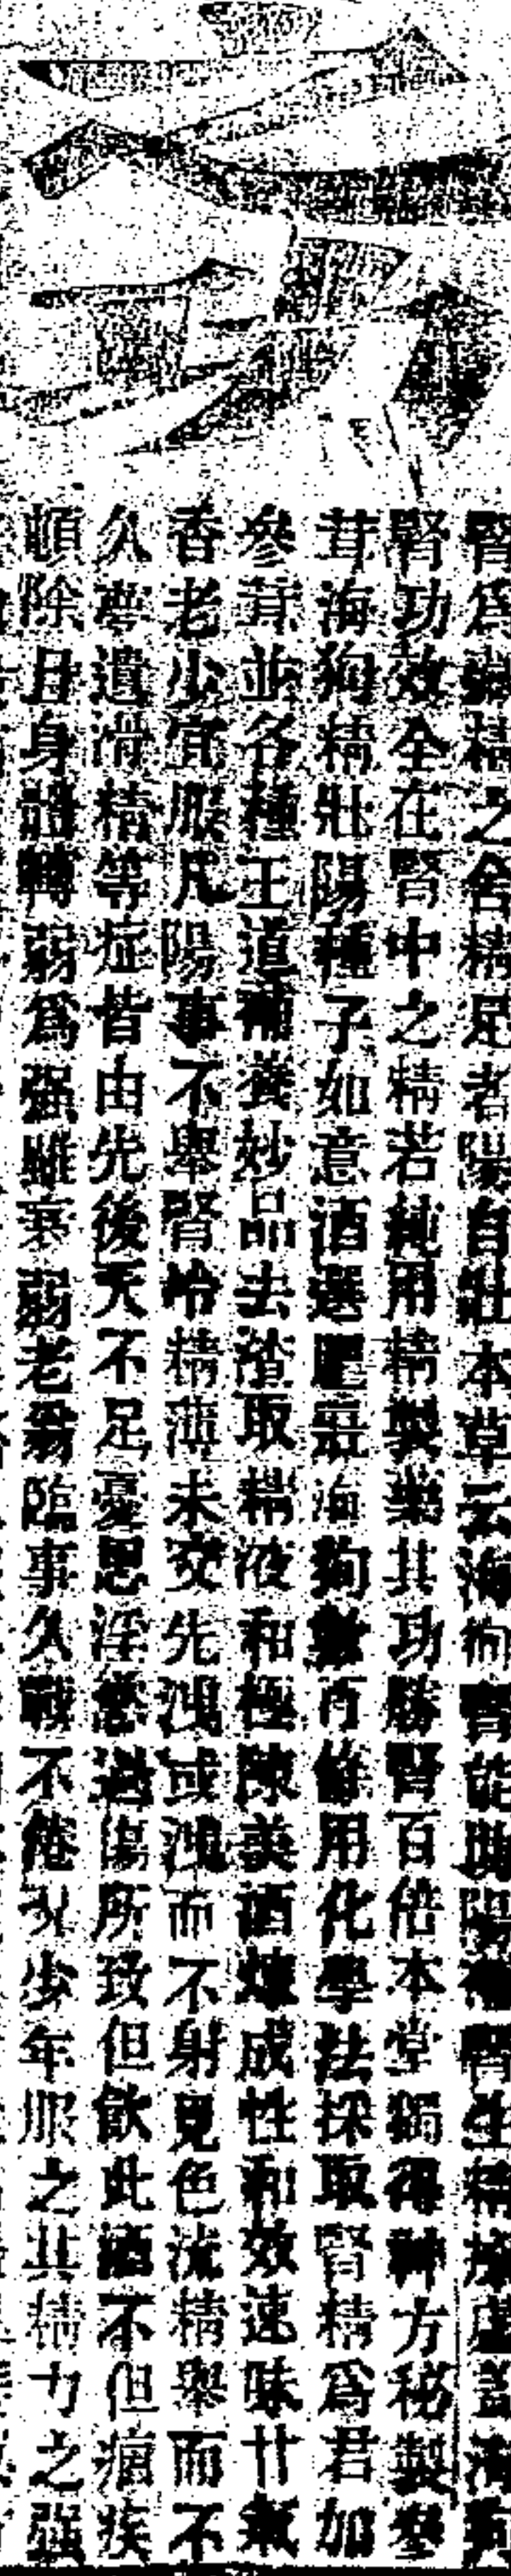 腎爲藏精之舍精足者陽自壯本草云海狗腎能助陽補腎生精療虛蓋海狗
腎功效全在腎中之精若純用精製藥其功勝腎百倍本堂獨得神方秘製參
茸海狗精壯陽種子如意酒選肥壯海狗數百條用化學法採取腎精爲君加
參茸並各種王道補養妙品去渣取精液和極陳美酒煉成性和效速味甘氣
香老少宜服凡陽事不舉腎冷精薄未交先洩或洩而不射見色流精舉而不
久夢遺滑精等症皆由先後天不足憂思淫慾過傷所致但飲此酒不但痼疾
頓除且身體轉弱爲强雖衰弱老翁臨事久戰不倦况少年服之其精力之强